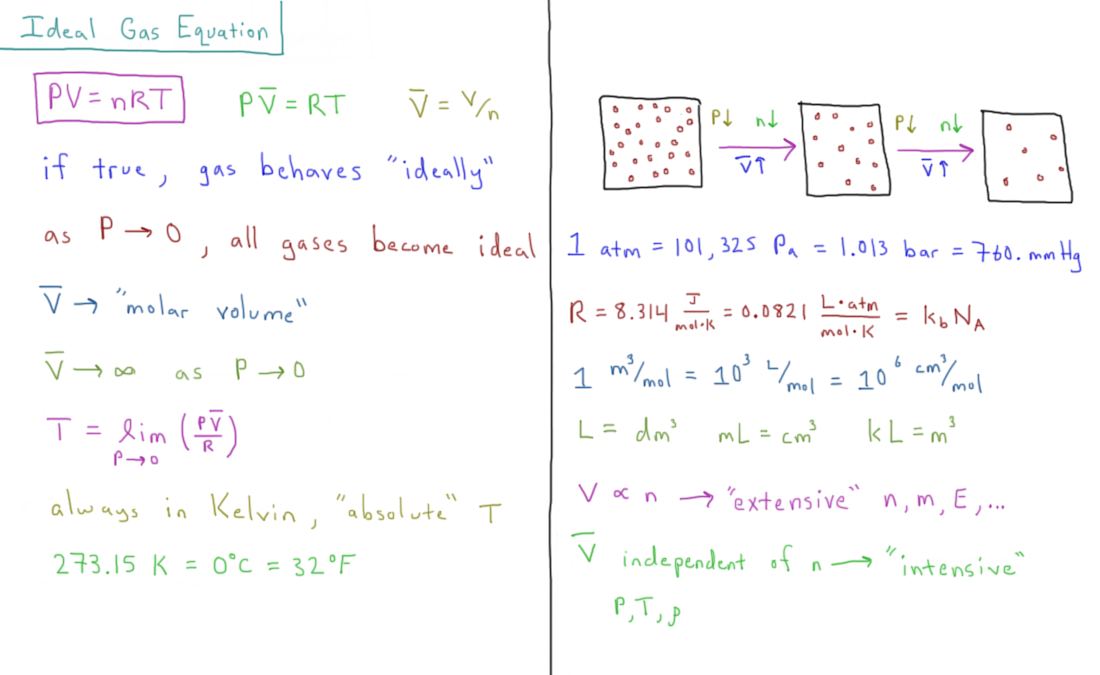 Ideal Gas Equation
PV = nRT   PV̅ = RT   V̅ = V/n
if true, gas behaves "ideally"
as P → 0, all gases become ideal
V̅ → "molar volume"
V̅ → ∞ as P → 0
T = lim P→0 (PV̅/R)
always in Kelvin, "absolute" T
273.15 K = 0°C = 32°F
P↓ n↓ V̅↑
P↓ n↓ V̅↑
1 atm = 101,325 Pa = 1.013 bar = 760. mmHg
R = 8.314 J/mol·K = 0.0821 L·atm/mol·K = k_b N_A
1 m³/mol = 10³ L/mol = 10⁶ cm³/mol
L = dm³   mL = cm³   kL = m³
V ∝ n → "extensive" n, m, E, ...
V̅ independent of n → "intensive"
P, T, ρ